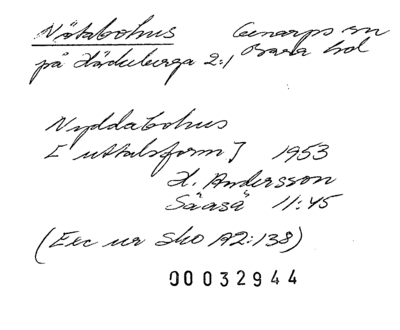 Nätabohus Genarps sn
på Häckeberga 2:1 Bara hd
Nyddabohus
[uttalsform] 1953
H. Andersson
Såaså 11:45
(Exc ur Sko A2:138)
00032944